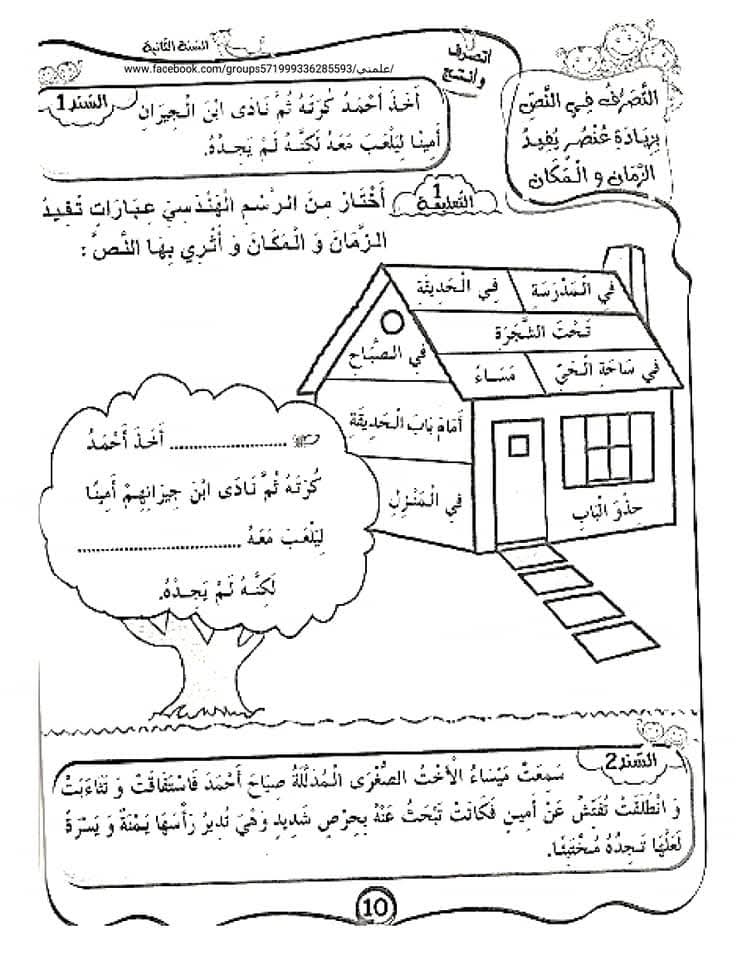 السنة الثانية
www.facebook.com/groups571999336285593/علمني/
أتصرف
وأنتج
التَّصَرُّفُ فِي النَّصِّ
بِزِيَادَةِ عُنْصُرٍ يُفِيدُ
الزَّمَانَ و الْمَكَانَ
السّند1
أَخَذَ أَحْمَدُ كُرَتَهُ ثُمَّ نَادَى ابْنَ الْجِيرَانِ
أَمِينًا لِيَلْعَبَ مَعَهُ لَكِنَّهُ لَمْ يَجِدْهُ.
التعليمة 1
أَخْتَارُ مِنَ الرَّسْمِ الْهَنْدَسِيِّ عِبَارَاتٍ تُفِيدُ
الزَّمَانَ وَ الْمَكَانَ وَ أُثْرِي بِهَا النَّصَّ :
فِي الْمَدْرَسَةِ
فِي الْحَدِيقَةِ
تَحْتَ الشَّجَرَةِ
فِي الصَّبَاحِ
فِي سَاحَةِ الْحَيِّ
مَسَاءً
أَمَامَ بَابِ الْحَدِيقَةِ
فِي الْمَنْزِلِ
حِذْوَ الْبَابِ
...................... أَخَذَ أَحْمَدُ
كُرَتَهُ ثُمَّ نَادَى ابْنَ جِيرَانِهِمْ أَمِينًا
لِيَلْعَبَ مَعَهُ ................................
لَكِنَّهُ لَمْ يَجِدْهُ.
السّند2
سَمِعَتْ مَيْسَاءُ الْأُخْتُ الصُّغْرَى الْمُدَلَّلَةُ صِيَاحَ أَحْمَدَ فَاسْتَفَاقَتْ وَ تَثَاءَبَتْ
وَ انْطَلَقَتْ تُفَتِّشُ عَنْ أَمِينٍ فَكَانَتْ تَبْحَثُ عَنْهُ بِحِرْصٍ شَدِيدٍ وَهْيَ تُدِيرُ رَأْسَهَا يَمْنَةً وَ يَسْرَةً
لَعَلَّهَا تَجِدُهُ مُخْتَبِئًا.
10